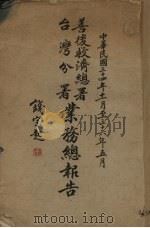 中華民國三十四年十一月至三十六年五月
善後救濟總署
台灣分署業務總報告
錢宗起